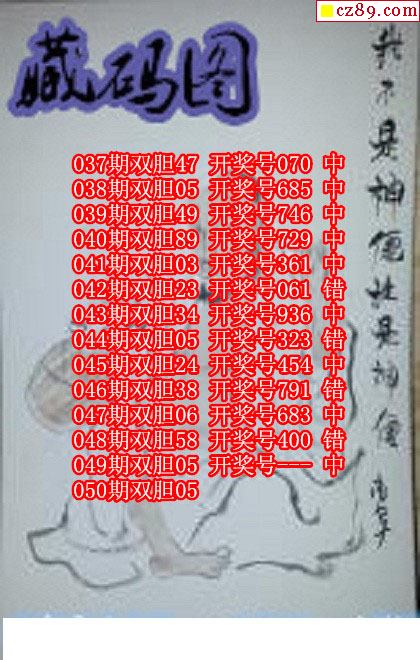 cz89.com
藏码图
037期双胆47 开奖号070 中
038期双胆05 开奖号685 中
039期双胆49 开奖号746 中
040期双胆89 开奖号729 中
041期双胆03 开奖号361 中
042期双胆23 开奖号061 错
043期双胆34 开奖号936 中
044期双胆05 开奖号323 错
045期双胆24 开奖号454 中
046期双胆38 开奖号791 错
047期双胆06 开奖号683 中
048期双胆58 开奖号400 错
049期双胆05 开奖号--- 中
050期双胆05
我不是神僊 是神僊